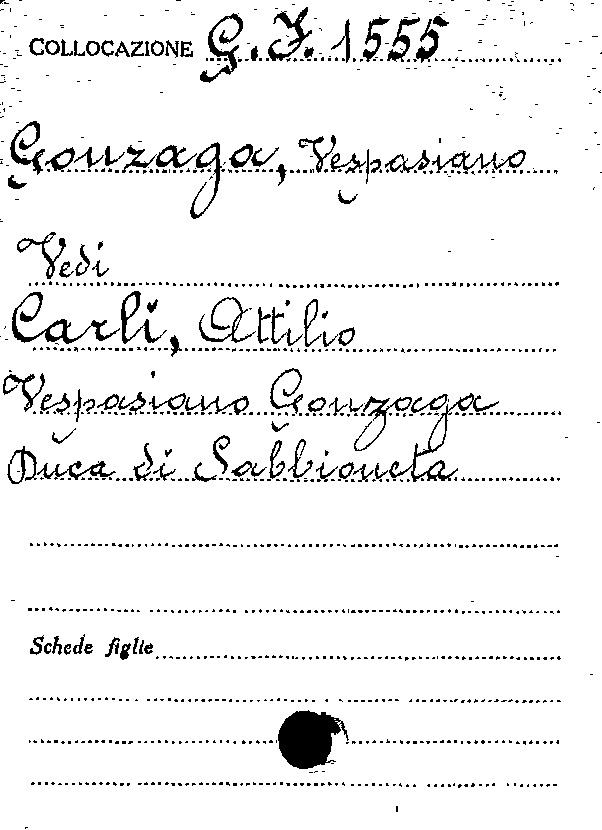 COLLOCAZIONE G. I. 1555
Gonzaga, Vespasiano
Vedi
Carli, Attilio
Vespasiano Gonzaga
Duca di Sabbioneta
Schede figlie